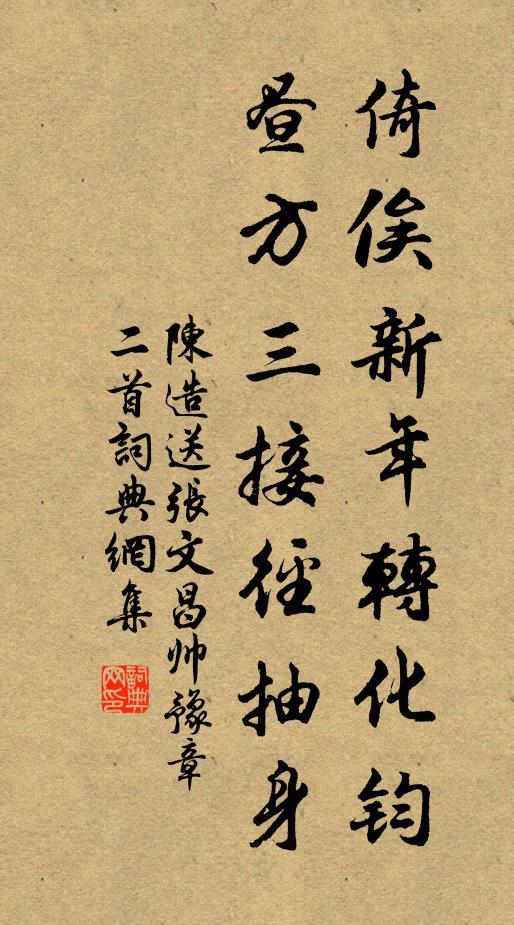 倚俟新年轉化鈞
昼方三接徑抽身
陳造送張文昌帅豫章
二首詞典網集
詞典网印